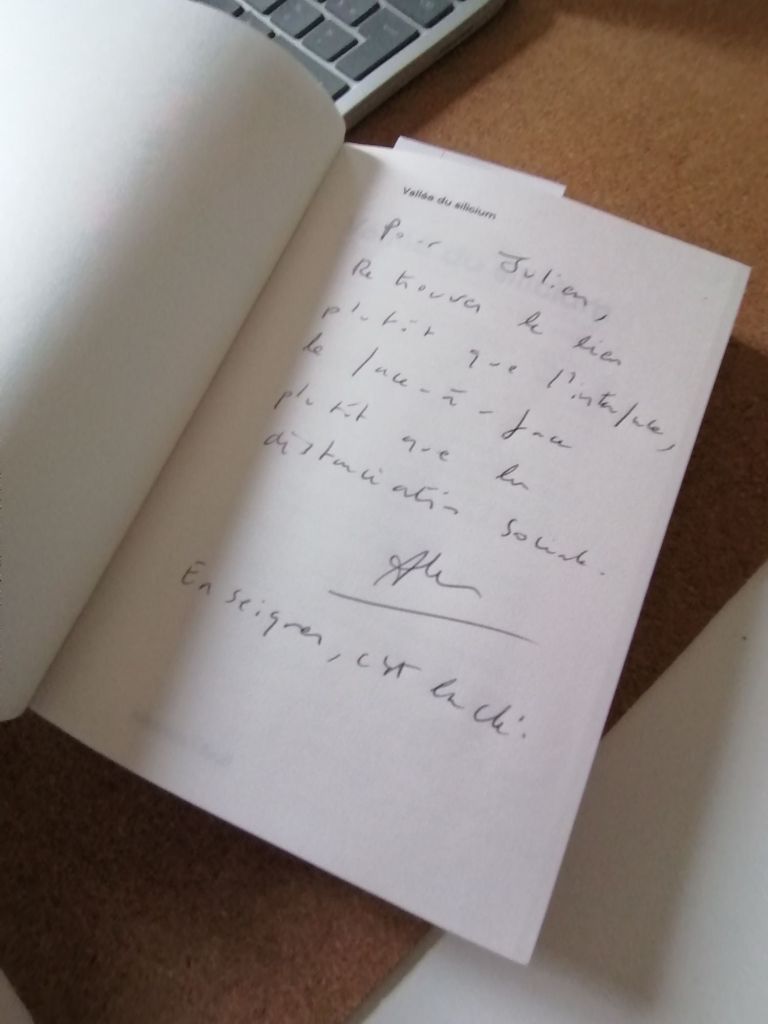 Vallée du silicium
Pour Julien,
Retrouver le lien
plutôt que l'interface,
le face-à-face
plutôt que la
distanciation sociale.
Enseigner, c'est la clé.